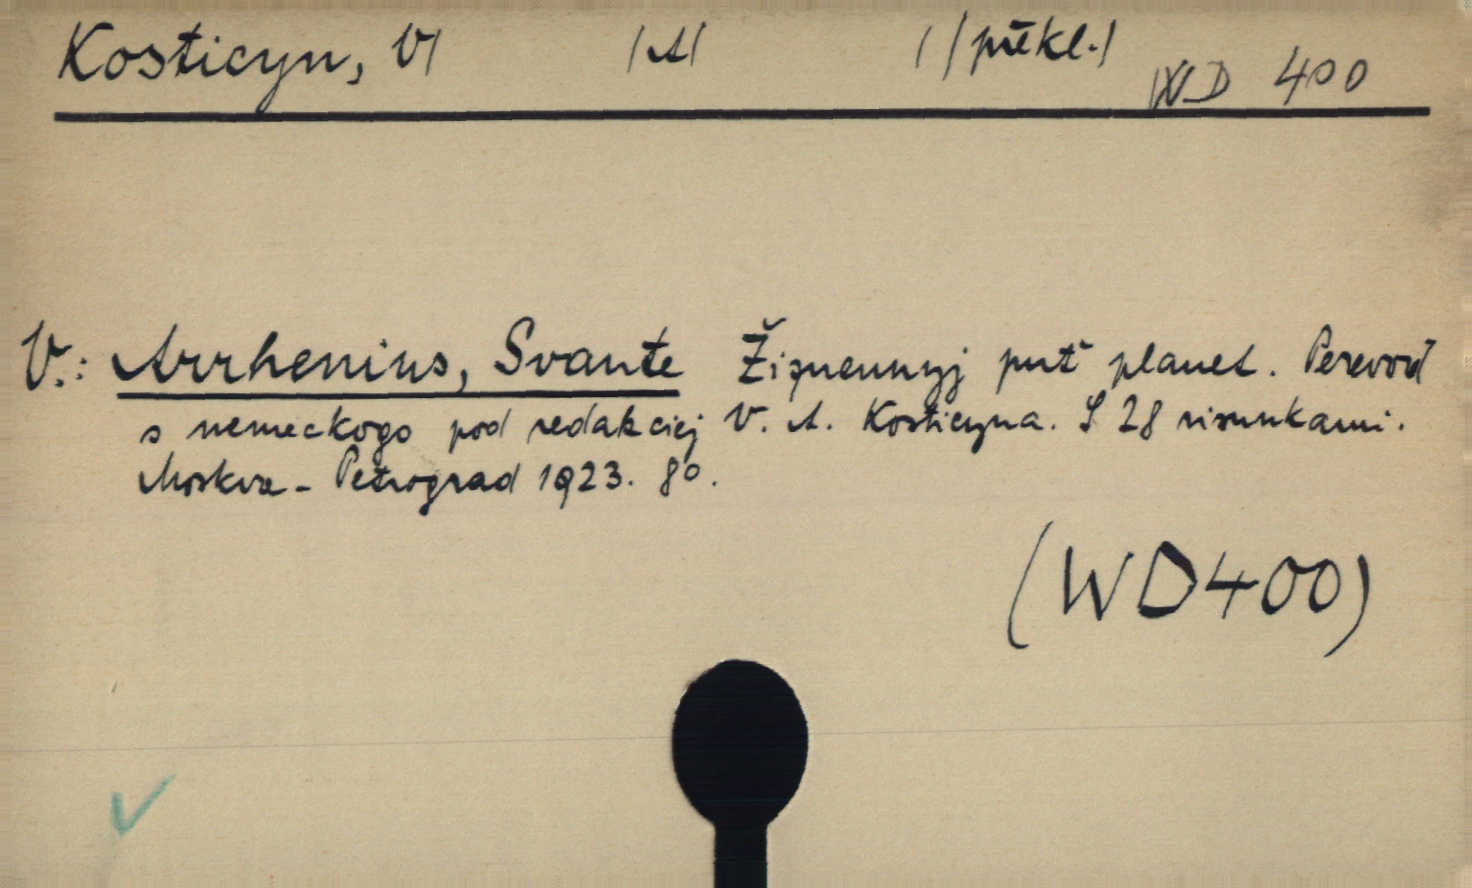 Kosticyn, V/ /A/ / /překl./
WD 400
V.: Arrhenius, Svante Žiznennyj put' planet. Perevod
s nemeckogo pod redakciej V. A. Kosticyna. S 28 risunkami.
Moskva - Petrograd 1923. 80.
(WD400)